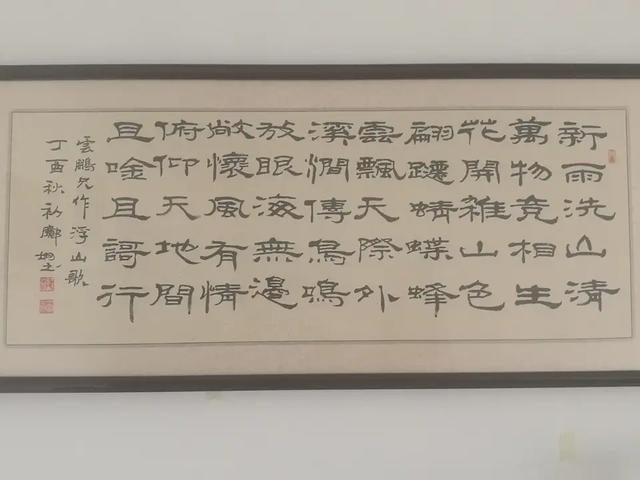 新雨洗山清
萬物竞相生
花開雜山色
翩躚蜻蝶蜂
雲飄天際外
溪澗傳鳥鳴
放眼海無邊
敞懷風有情
俯仰天地間
且唫且謌行
雲鵬兄作浮山歌
丁酉秋初